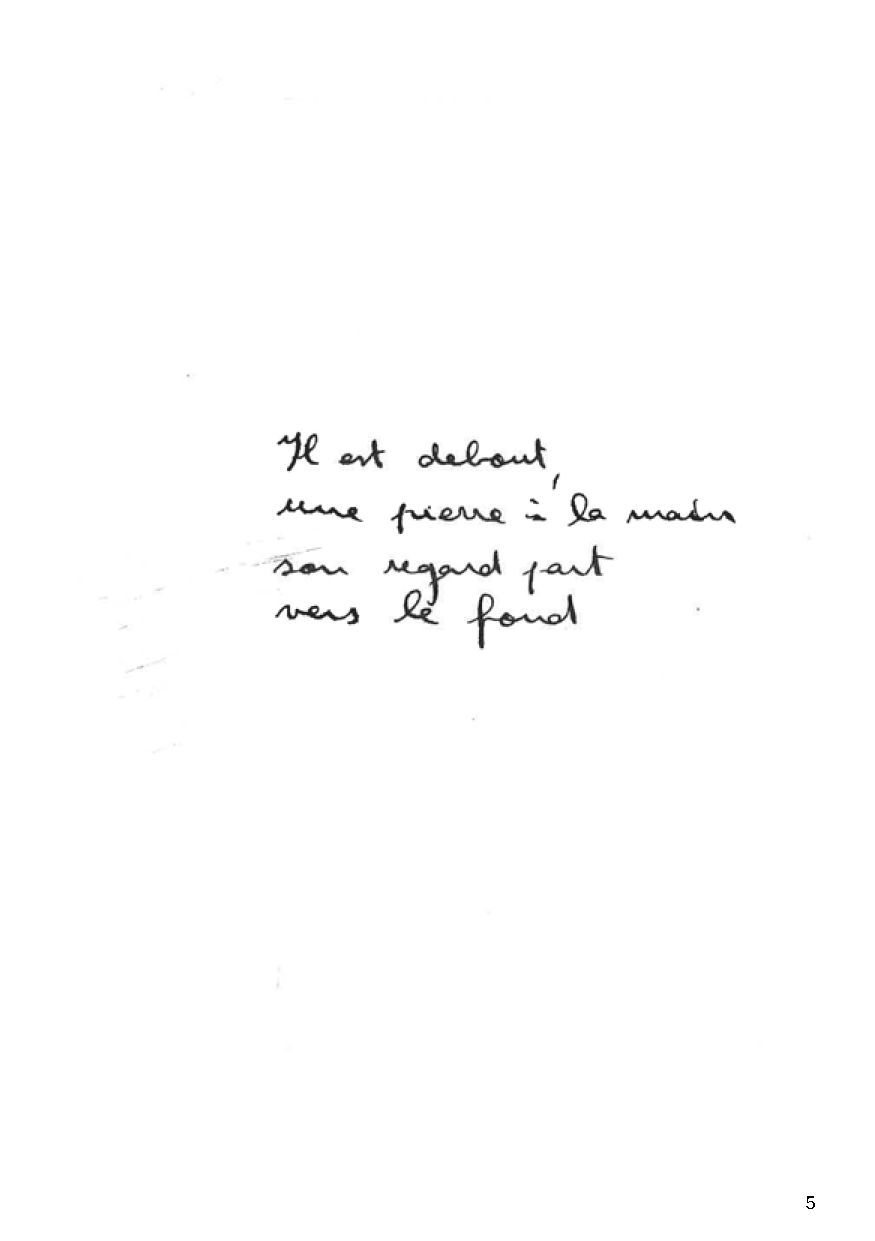 Il est debout,
une pierre à la main
son regard part
vers le fond
5